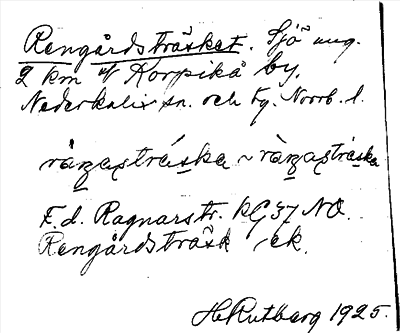 Rengårdsträsket. Sjö ung.
2 km V Korpikå by,
Nederkalix sn. och tg. Norrb. l.
F. d. Ragnarstr. KG 37 NO.
Rengårdsträsk ek.
H. Rutberg 1925.